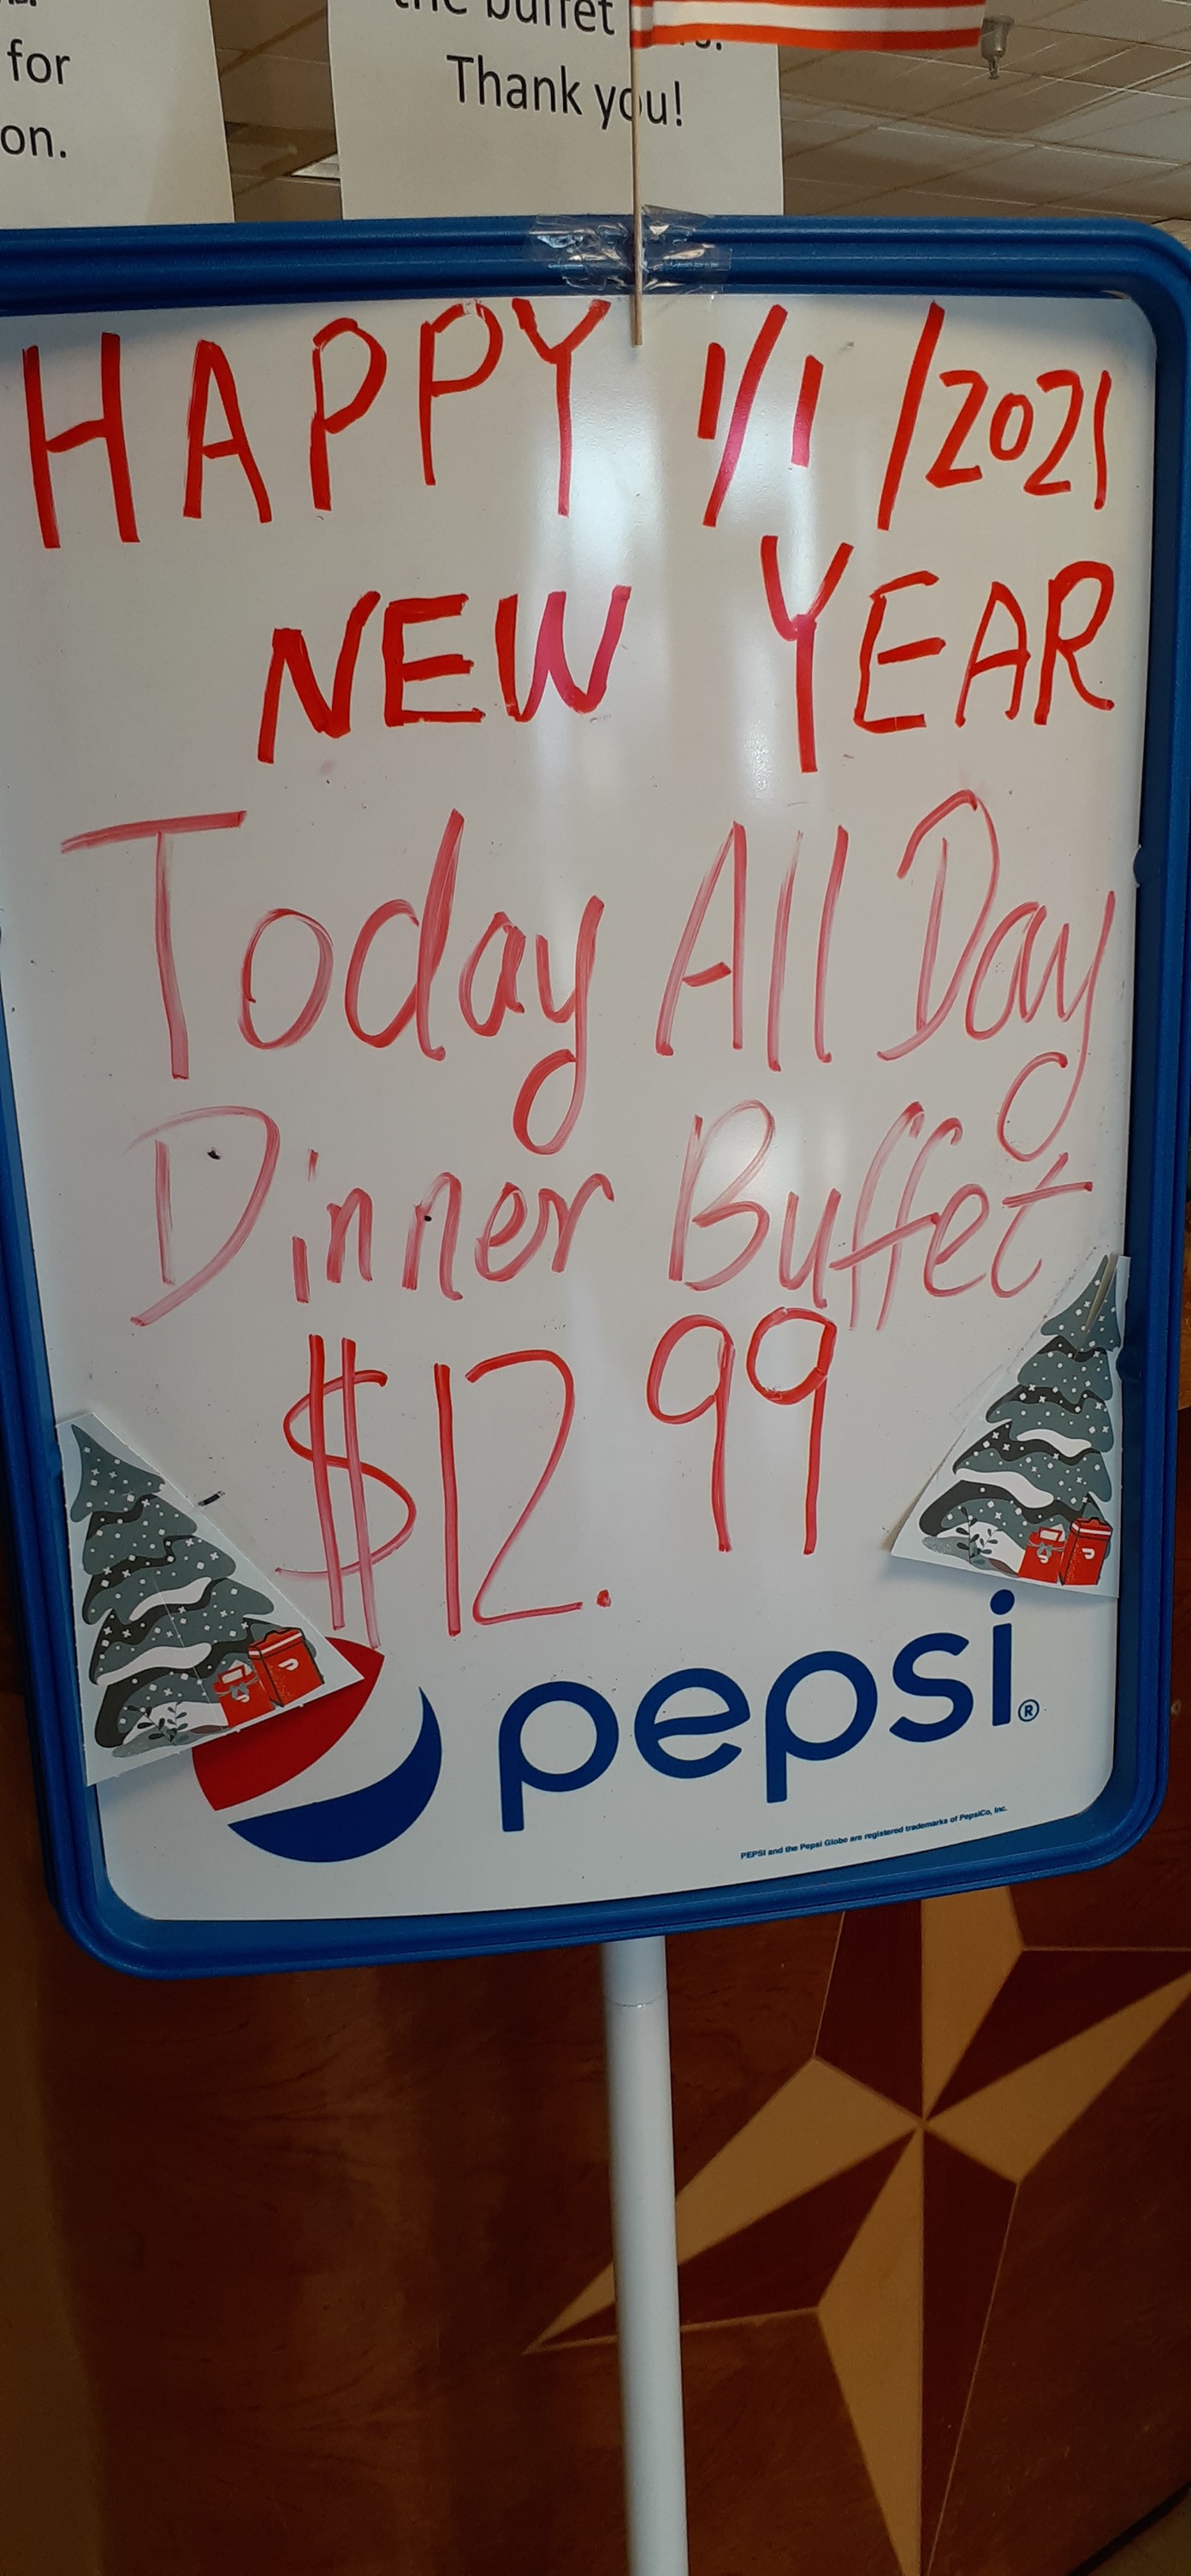 for
on.
the buffet
Thank you!
HAPPY 1/1/2021
NEW YEAR
Today All Day
Dinner Buffet
$12.99
pepsi®
PEPSI and the Pepsi Globe are registered trademarks of PepsiCo, Inc.